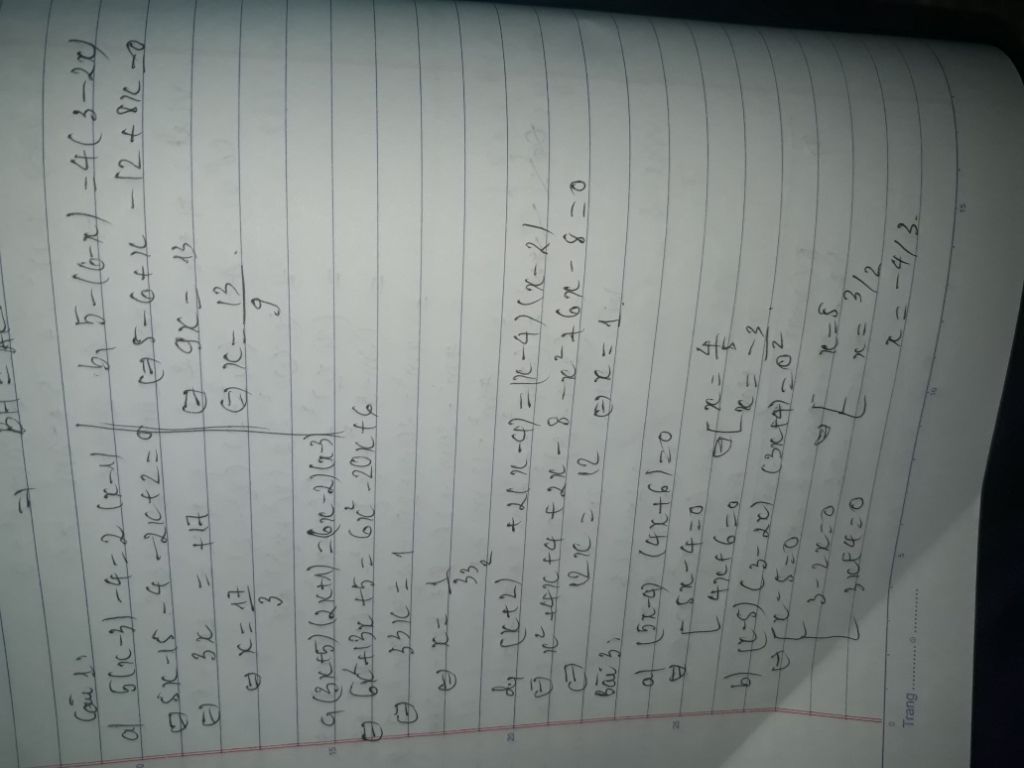 =) BH = AC
Câu 1:
a) 5(x-3)-4=2(x-1)
⇔ 5x-15-4-2x+2=0
⇔ 3x = +17
⇔ x = 17/3
b, 5-(6-x) = 4(3-2x)
⇔ 5-6+x-12+8x=0
⇔ 9x = 13
⇔ x = 13/9.
(3x+5)(2x+1)=(6x-2)(x-3)
⇔ 6x²+13x+5=6x²-20x+6
⇔ 33x = 1
⇔ x = 1/33
d, (x+2)² +2(x-4)=(x-4)(x-2)
⇔ x²+4x+4+2x-8-x²+6x-8=0
⇔ 12x = 12 ⇔ x = 1.
Bài 3:
a) (5x-4)(4x+6)=0
⇔ [ 5x-4=0
4x+6=0 ⇔ [ x = 4/5
x = -3/2
b) (x-5)(3-2x)(3x+4)=0
⇔ [ x-5=0
3-2x=0 ⇔ [ x=5
3x+4=0 x = 3/2
x = -4/3.
Trang